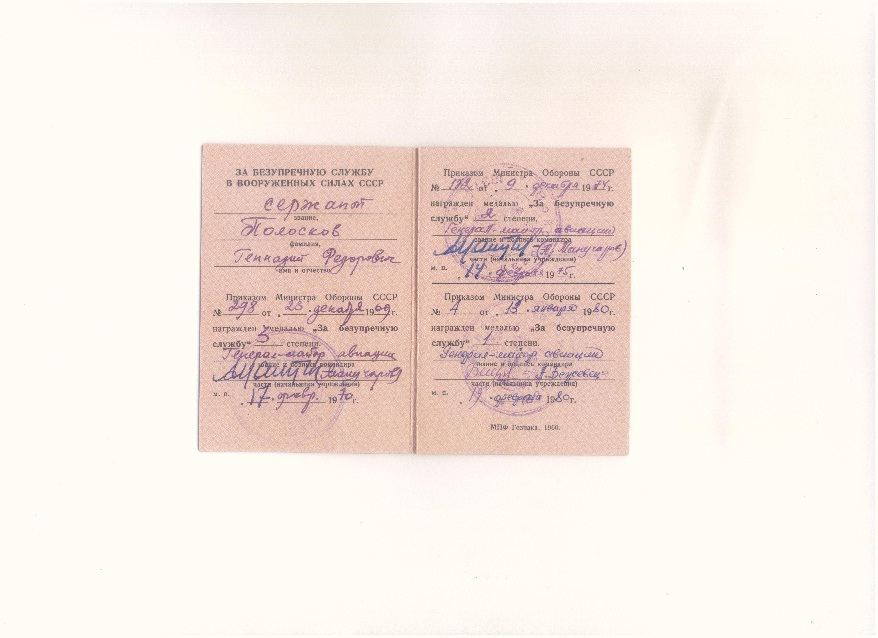 ЗА БЕЗУПРЕЧНУЮ СЛУЖБУ
В ВООРУЖЕННЫХ СИЛАХ СССР
сержант
звание,
Полосков
фамилия,
Геннадий Федорович
имя и отчество
Приказом Министра Обороны СССР
№ 298 от „23“ декабря 1969г.
награжден медалью „За безупречную
службу“ 3 степени.
Генерал-майор авиации
звание и подпись командира
части (начальника учреждения)
м. п. „17“ февр. 1970г.
Приказом Министра Обороны СССР
№ от „9“ декабря 1974г.
награжден медалью „За безупречную
службу“ степени.
Генерал-майор авиации
звание и подпись командира
части (начальника учреждения)
м. п. „14“ февраля 1975г.
Приказом Министра Обороны СССР
№ 4 от „13“ января 1980г.
награжден медалью „За безупречную
службу“ 1 степени.
Генерал-майор авиации
звание и подпись командира
части (начальника учреждения)
м. п. февраля 1980г.
МПФ Гознака. 1960.